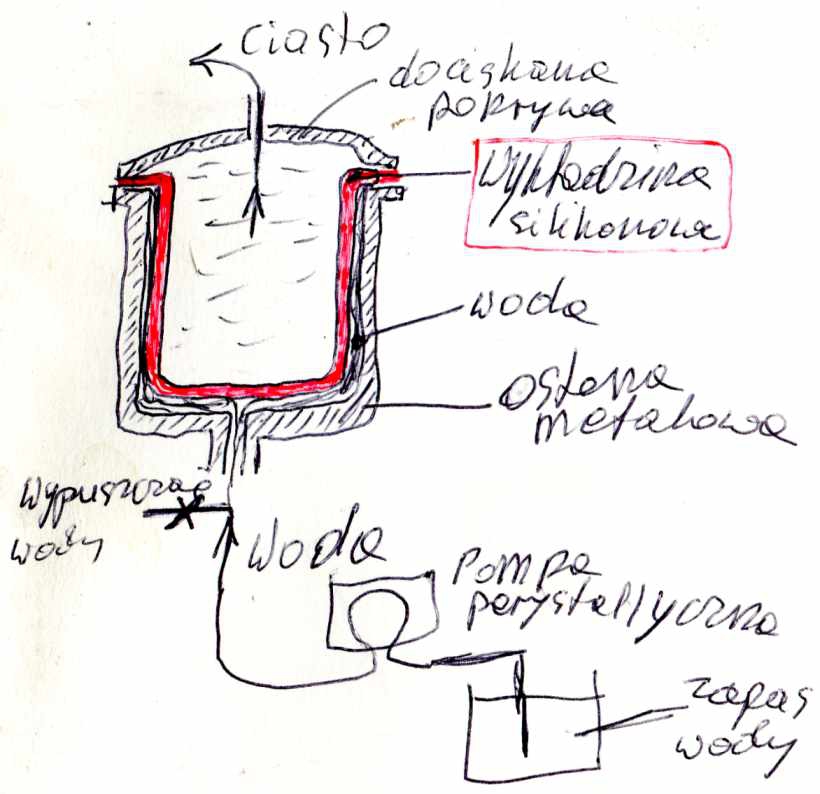 ciasto
dociskana
pokrywa
Wykładzina
silikonowa
woda
osłona
metalowa
wypuszczać
wody
woda
pompa
perystaltyczna
zapas
wody